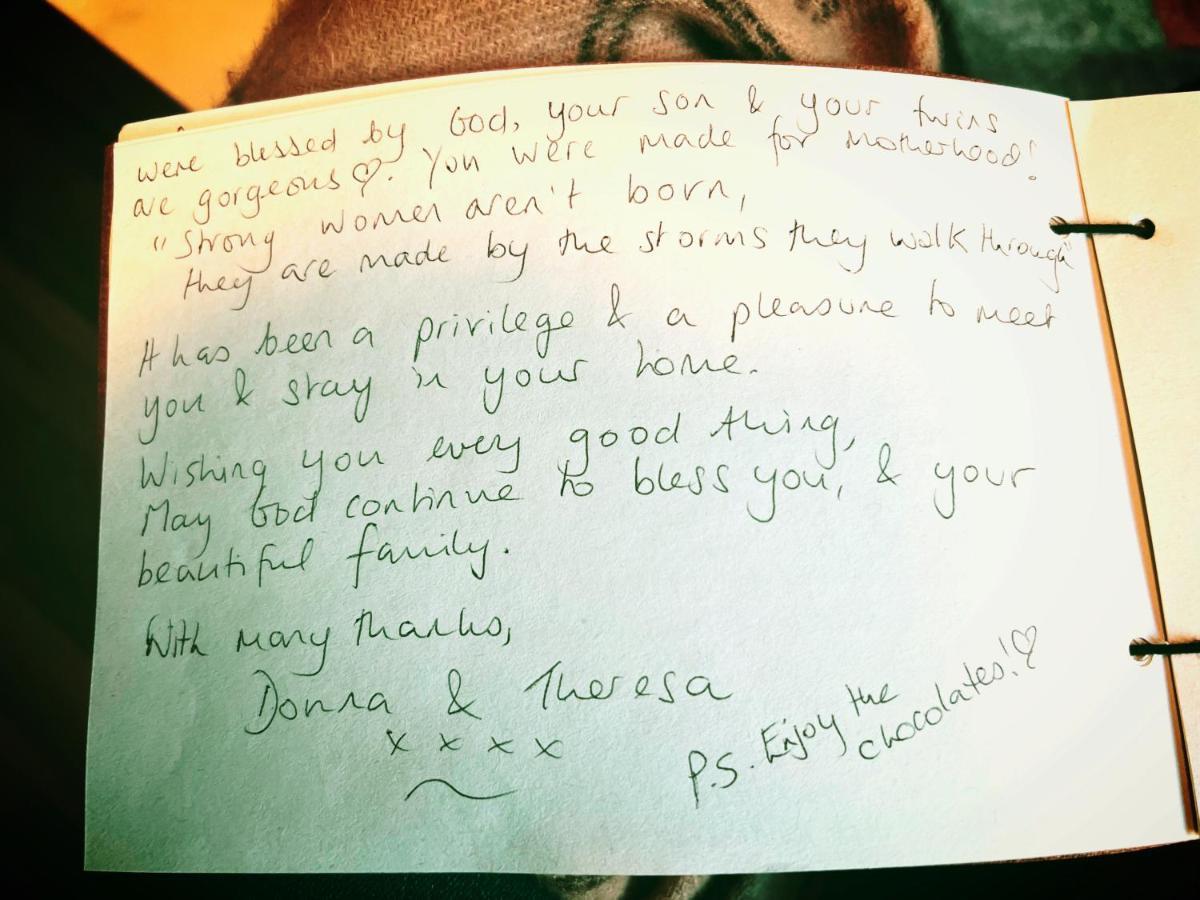 were blessed by God, your son & your twins
are gorgeous ♡. You were made for motherhood!
"Strong women aren't born,
they are made by the storms they walk through"
It has been a privilege & a pleasure to meet
you & stay in your home.
Wishing you every good thing,
May God continue to bless you, & your
beautiful family.
With many thanks,
Donna & Theresa
x x x x
P.S. Enjoy the
chocolates! ♡